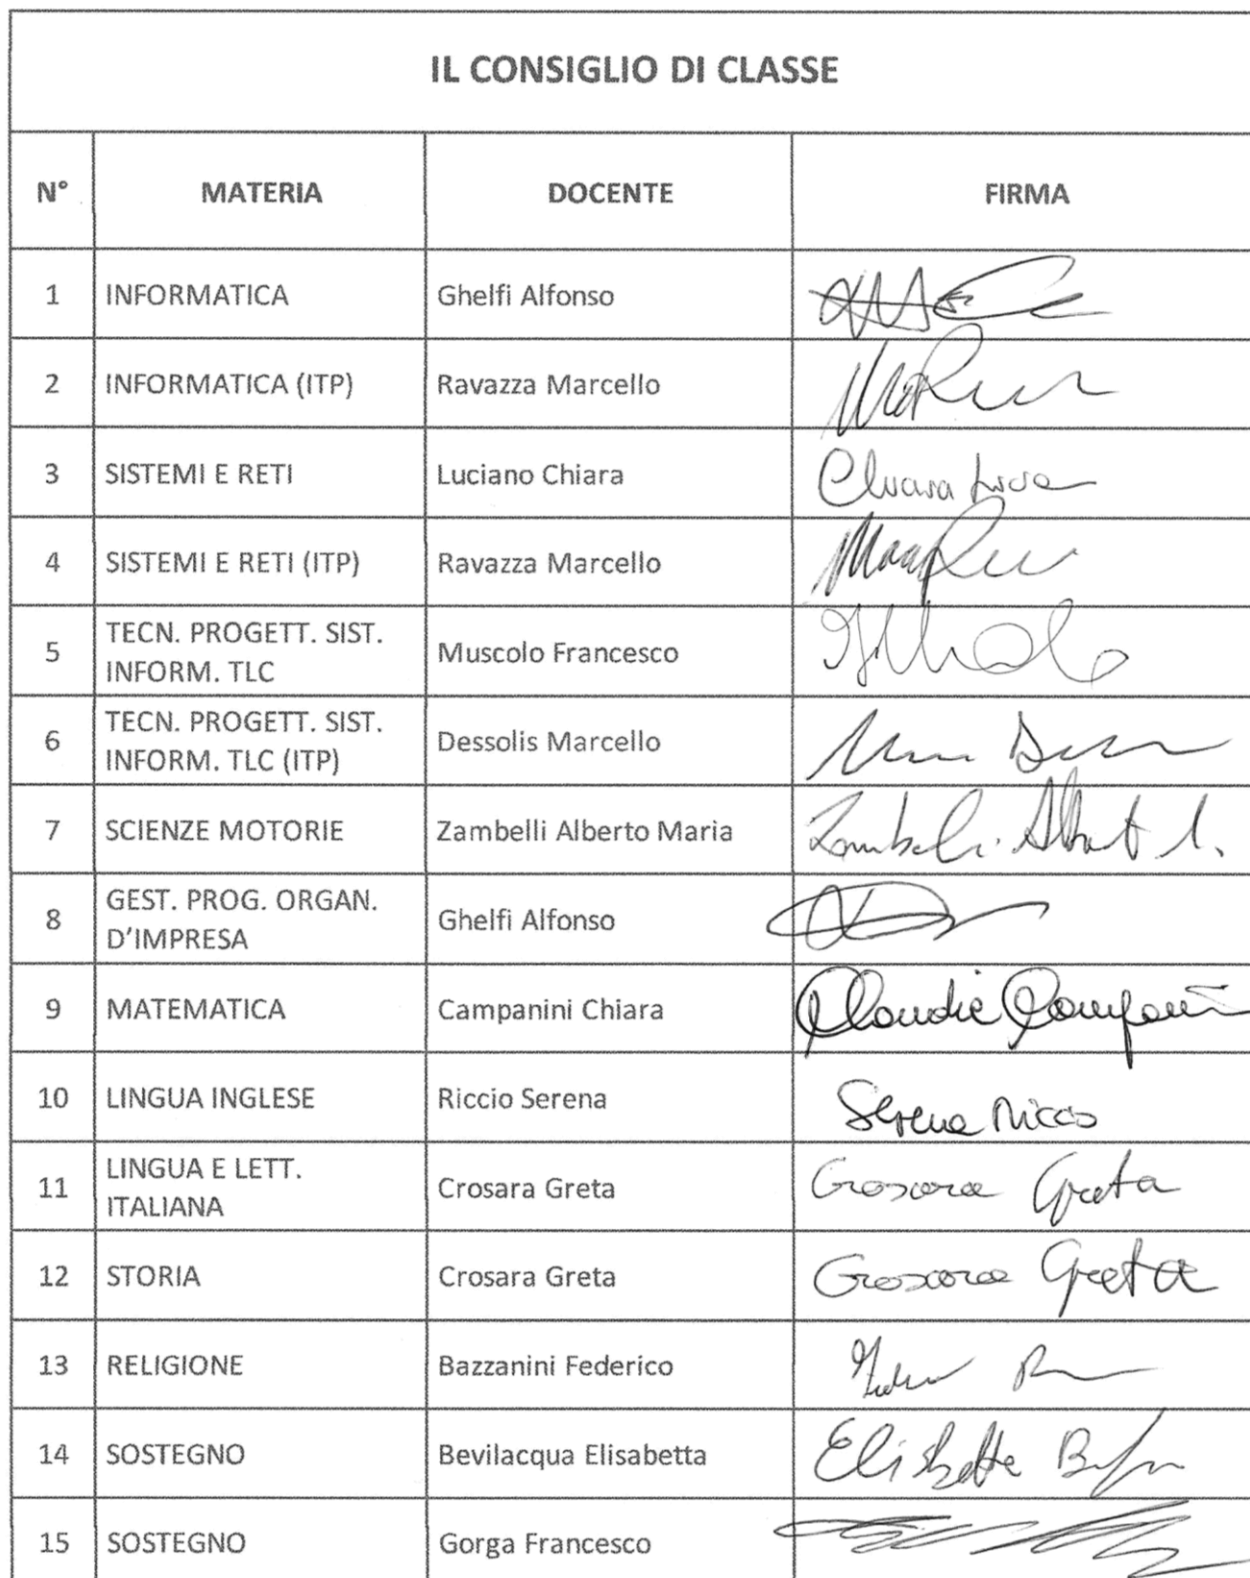 IL CONSIGLIO DI CLASSE
N° MATERIA DOCENTE FIRMA
1 INFORMATICA Ghelfi Alfonso
2 INFORMATICA (ITP) Ravazza Marcello
3 SISTEMI E RETI Luciano Chiara Chiara
4 SISTEMI E RETI (ITP) Ravazza Marcello
5 TECN. PROGETT. SIST.
INFORM. TLC Muscolo Francesco
6 TECN. PROGETT. SIST.
INFORM. TLC (ITP) Dessolis Marcello
7 SCIENZE MOTORIE Zambelli Alberto Maria
8 GEST. PROG. ORGAN.
D'IMPRESA Ghelfi Alfonso
9 MATEMATICA Campanini Chiara Claudia Campanini
10 LINGUA INGLESE Riccio Serena Serena Riccio
11 LINGUA E LETT.
ITALIANA Crosara Greta Crosara Greta
12 STORIA Crosara Greta Crosara Greta
13 RELIGIONE Bazzanini Federico
14 SOSTEGNO Bevilacqua Elisabetta Elisabetta
15 SOSTEGNO Gorga Francesco